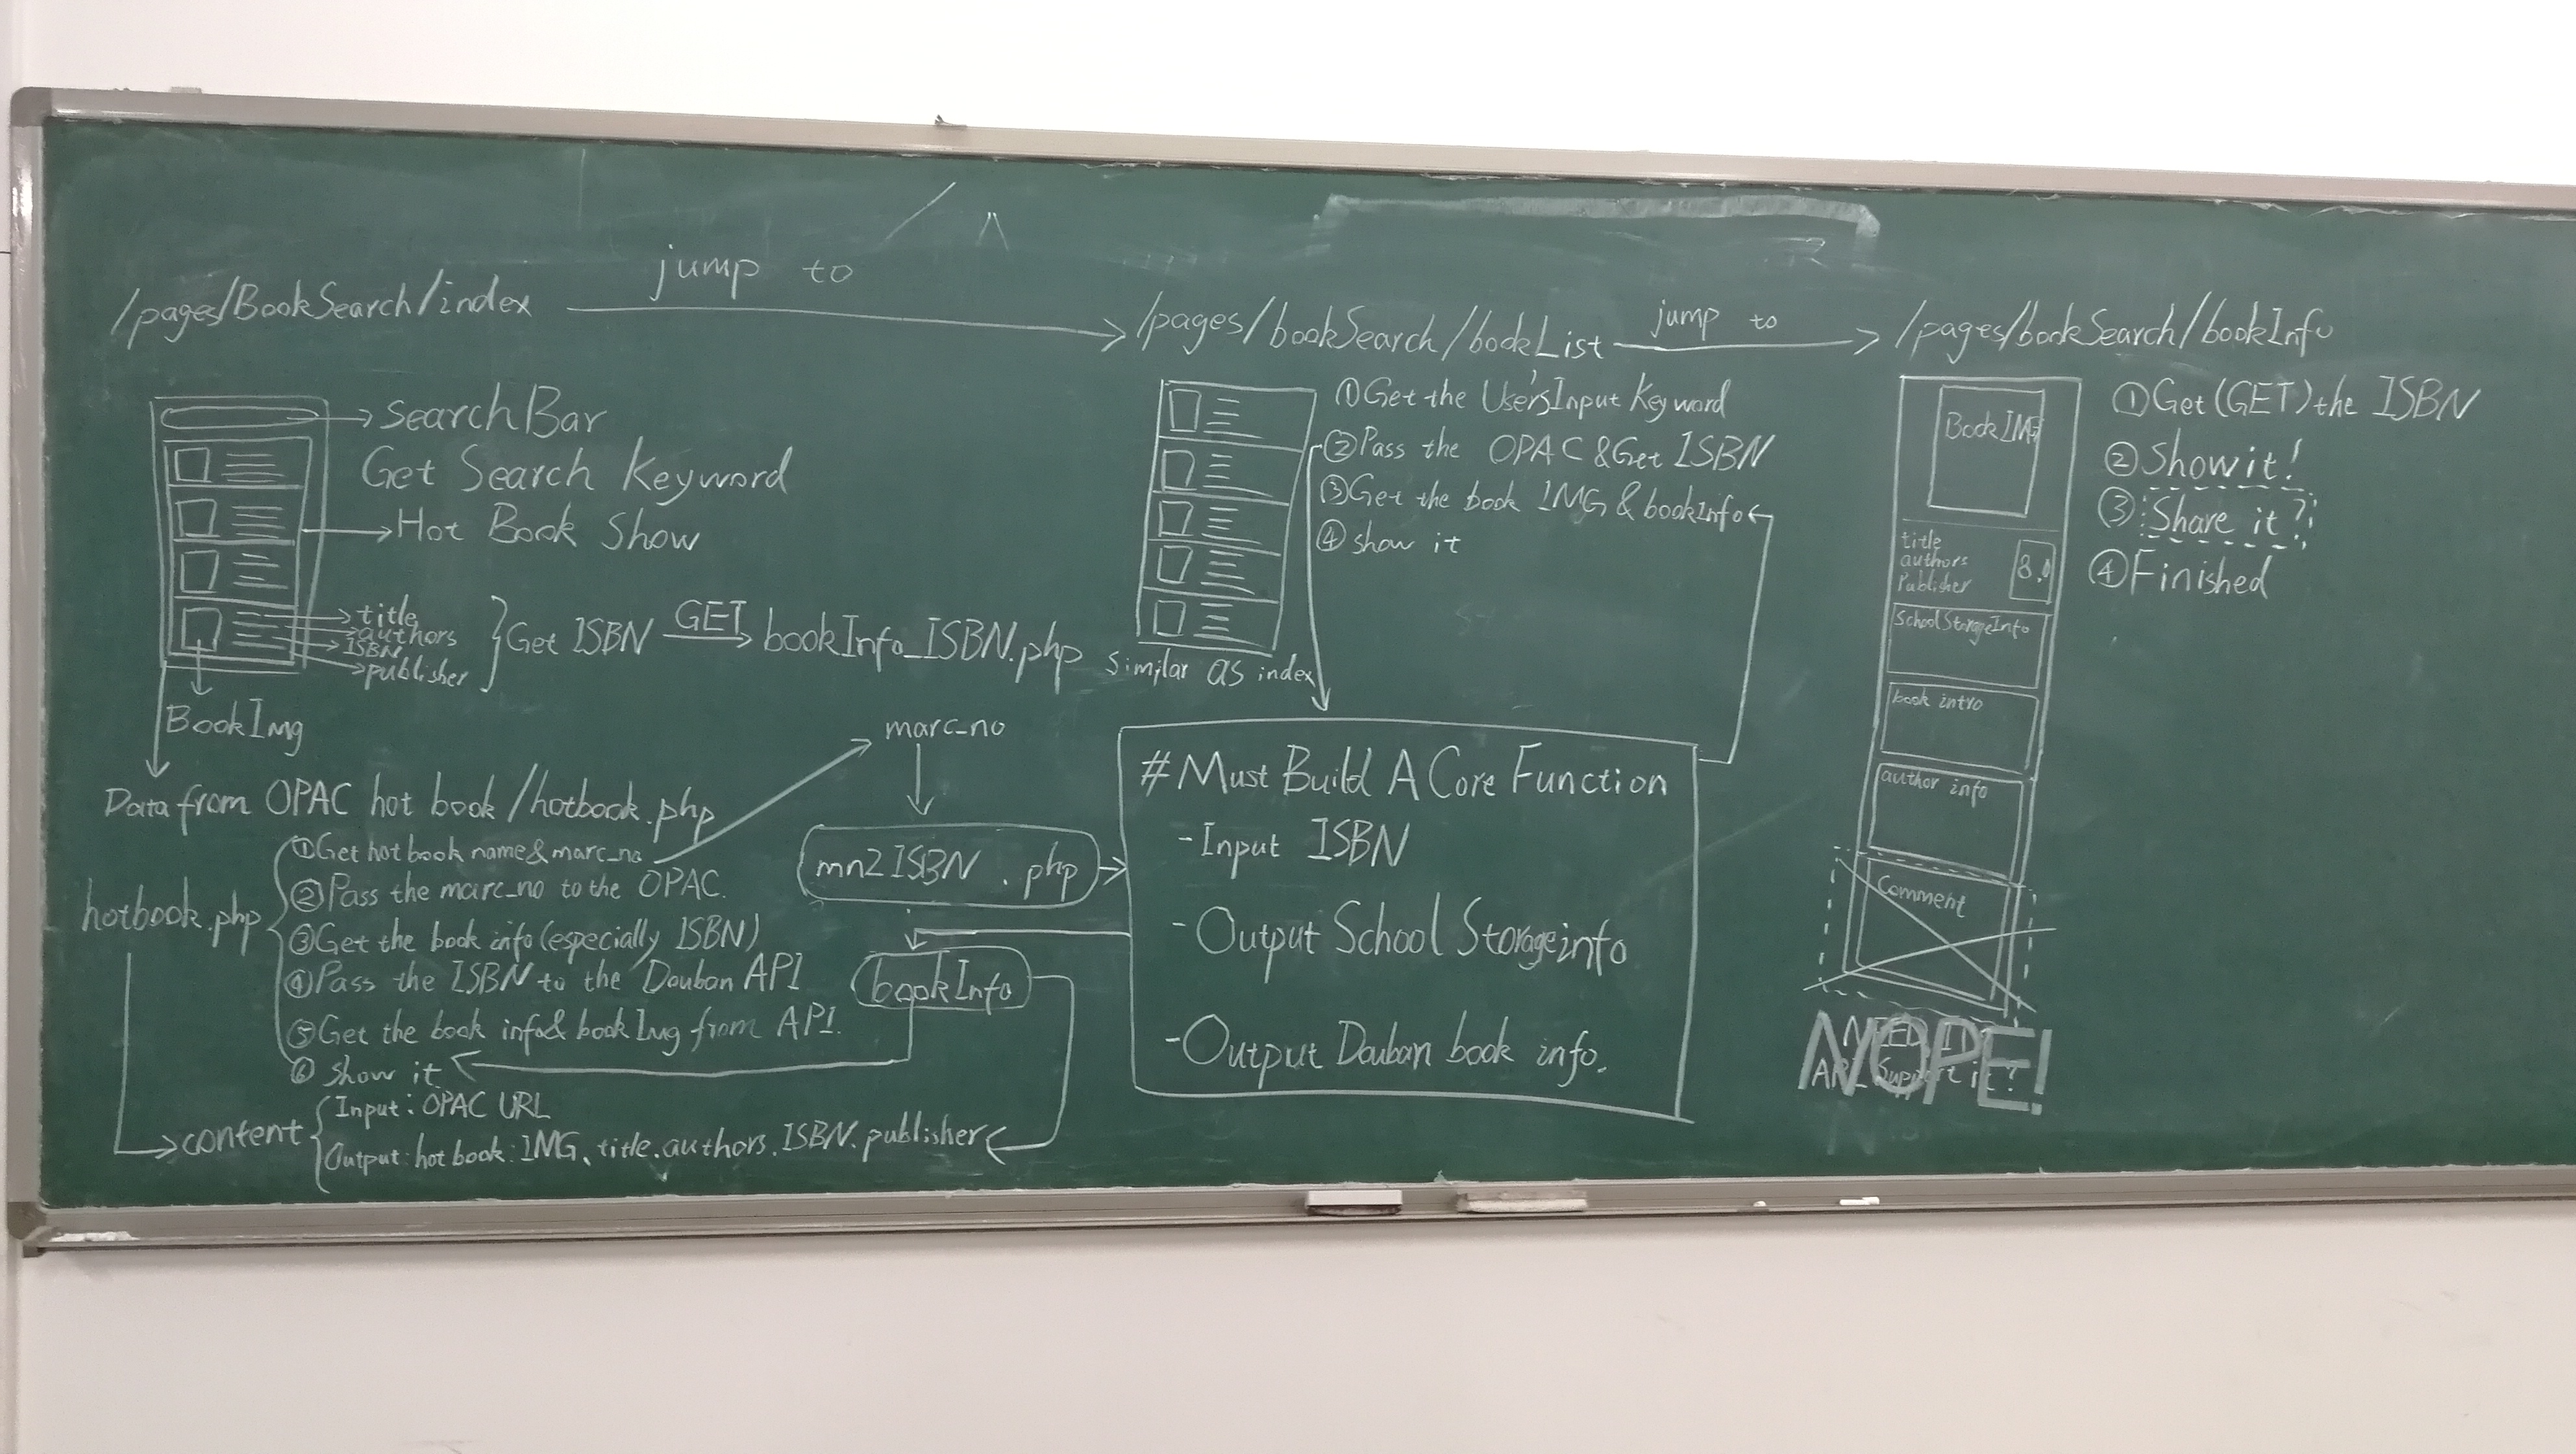 jump to
/pages/BookSearch/index
/pages/bookSearch/bookList
jump to
/pages/bookSearch/bookInfo
SearchBar
Get Search Keyword
Hot Book Show
title
authors
ISBN
publisher
Get ISBN
GET
bookInfo_ISBN.php
BookImg
Data from OPAC hot book/hotbook.php
hotbook.php
①Get hot book name&marc_no
②Pass the marc_no to the OPAC.
③Get the book info(especially ISBN)
④Pass the ISBN to the Douban API
⑤Get the book info& book Img from API.
⑥ show it
content
Input: OPAC URL
Output: hot book: IMG、title.authors.ISBN.publisher
marc_no
mn2ISBN.php
bookInfo
①Get the User'sInput Keyword
②Pass the OPAC &Get ISBN
③Get the book IMG & bookInfo
④ show it
Similar as index
#Must Build A Core Function
-Input ISBN
-Output School Storageinfo
-Output Douban book info.
BookIMG
title
authors
Publisher
8.0
SchoolStorageInfo
book intro
author info
Comment
NOPE!
API Support it?
①Get(GET)the ISBN
②Show it!
③Share it?
④Finished